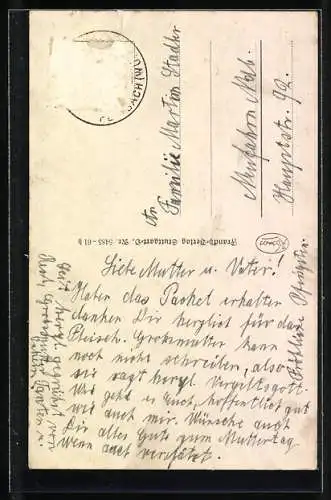 An
Familie Martin Stadler
Neufahrn Ndb.
Hauptstr. 92.
Franckh-Verlag Stuttgart-O. Nr. 5485 - 61 b
Liebe Mutter u. Vater!
Haben das Packet erhalten
danken Dir herzlich für das
Fleisch. Großmutter kann
noch nicht schreiben, also
sie sagt herzl. Vergiltsgott.
Wie geht es Euch, hoffentlich gut
wie auch mir. Wünsche auch
Dir alles Gute zum Muttertag
Wenn auch verspätet.
Fröhliche Pfingsten
herzl. gegrüßt von
Großmutter